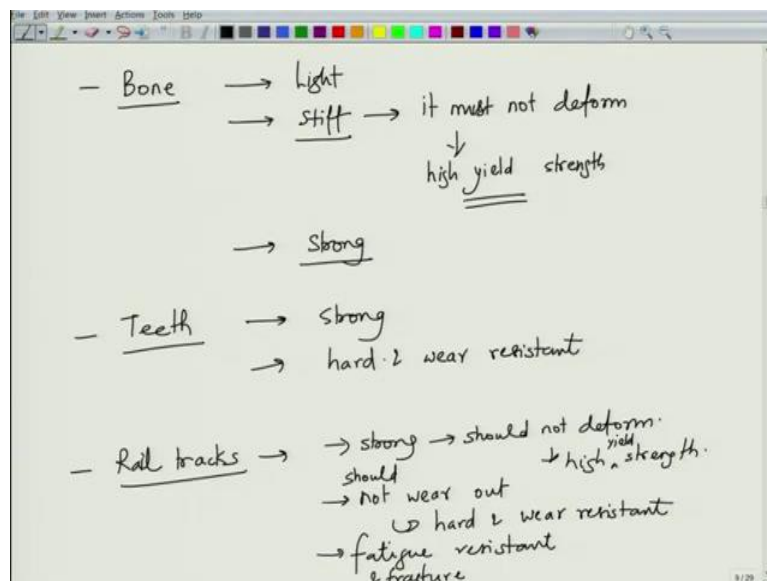 File Edit View Insert Actions Tools Help
- Bone → Light
→ Stiff → it must not deform
↓
high yield strength
→ Strong
- Teeth → strong
→ hard & wear resistant
- Rail tracks → → strong → should not deform.
↳ high yield strength.
should
→ not wear out
↳ hard & wear resistant
→ fatigue resistant
& fracture
9/29